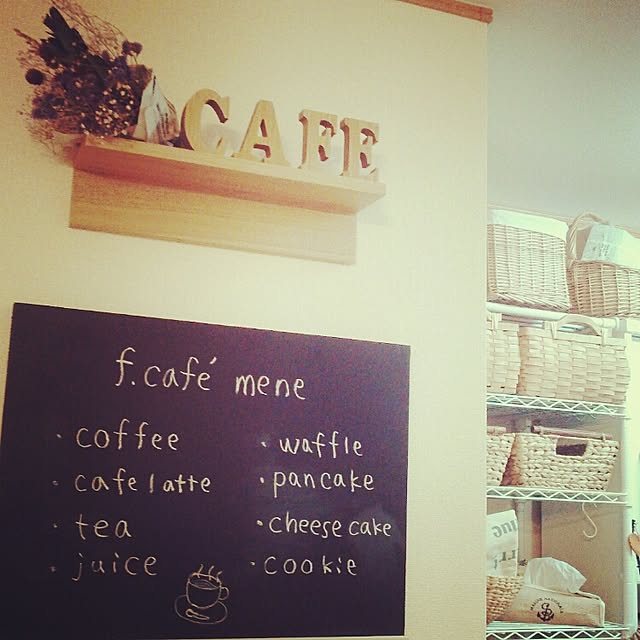 CAFE
f.café mene
· coffee
· cafe latte
· tea
· juice
· waffle
· pancake
· cheese cake
· cookie